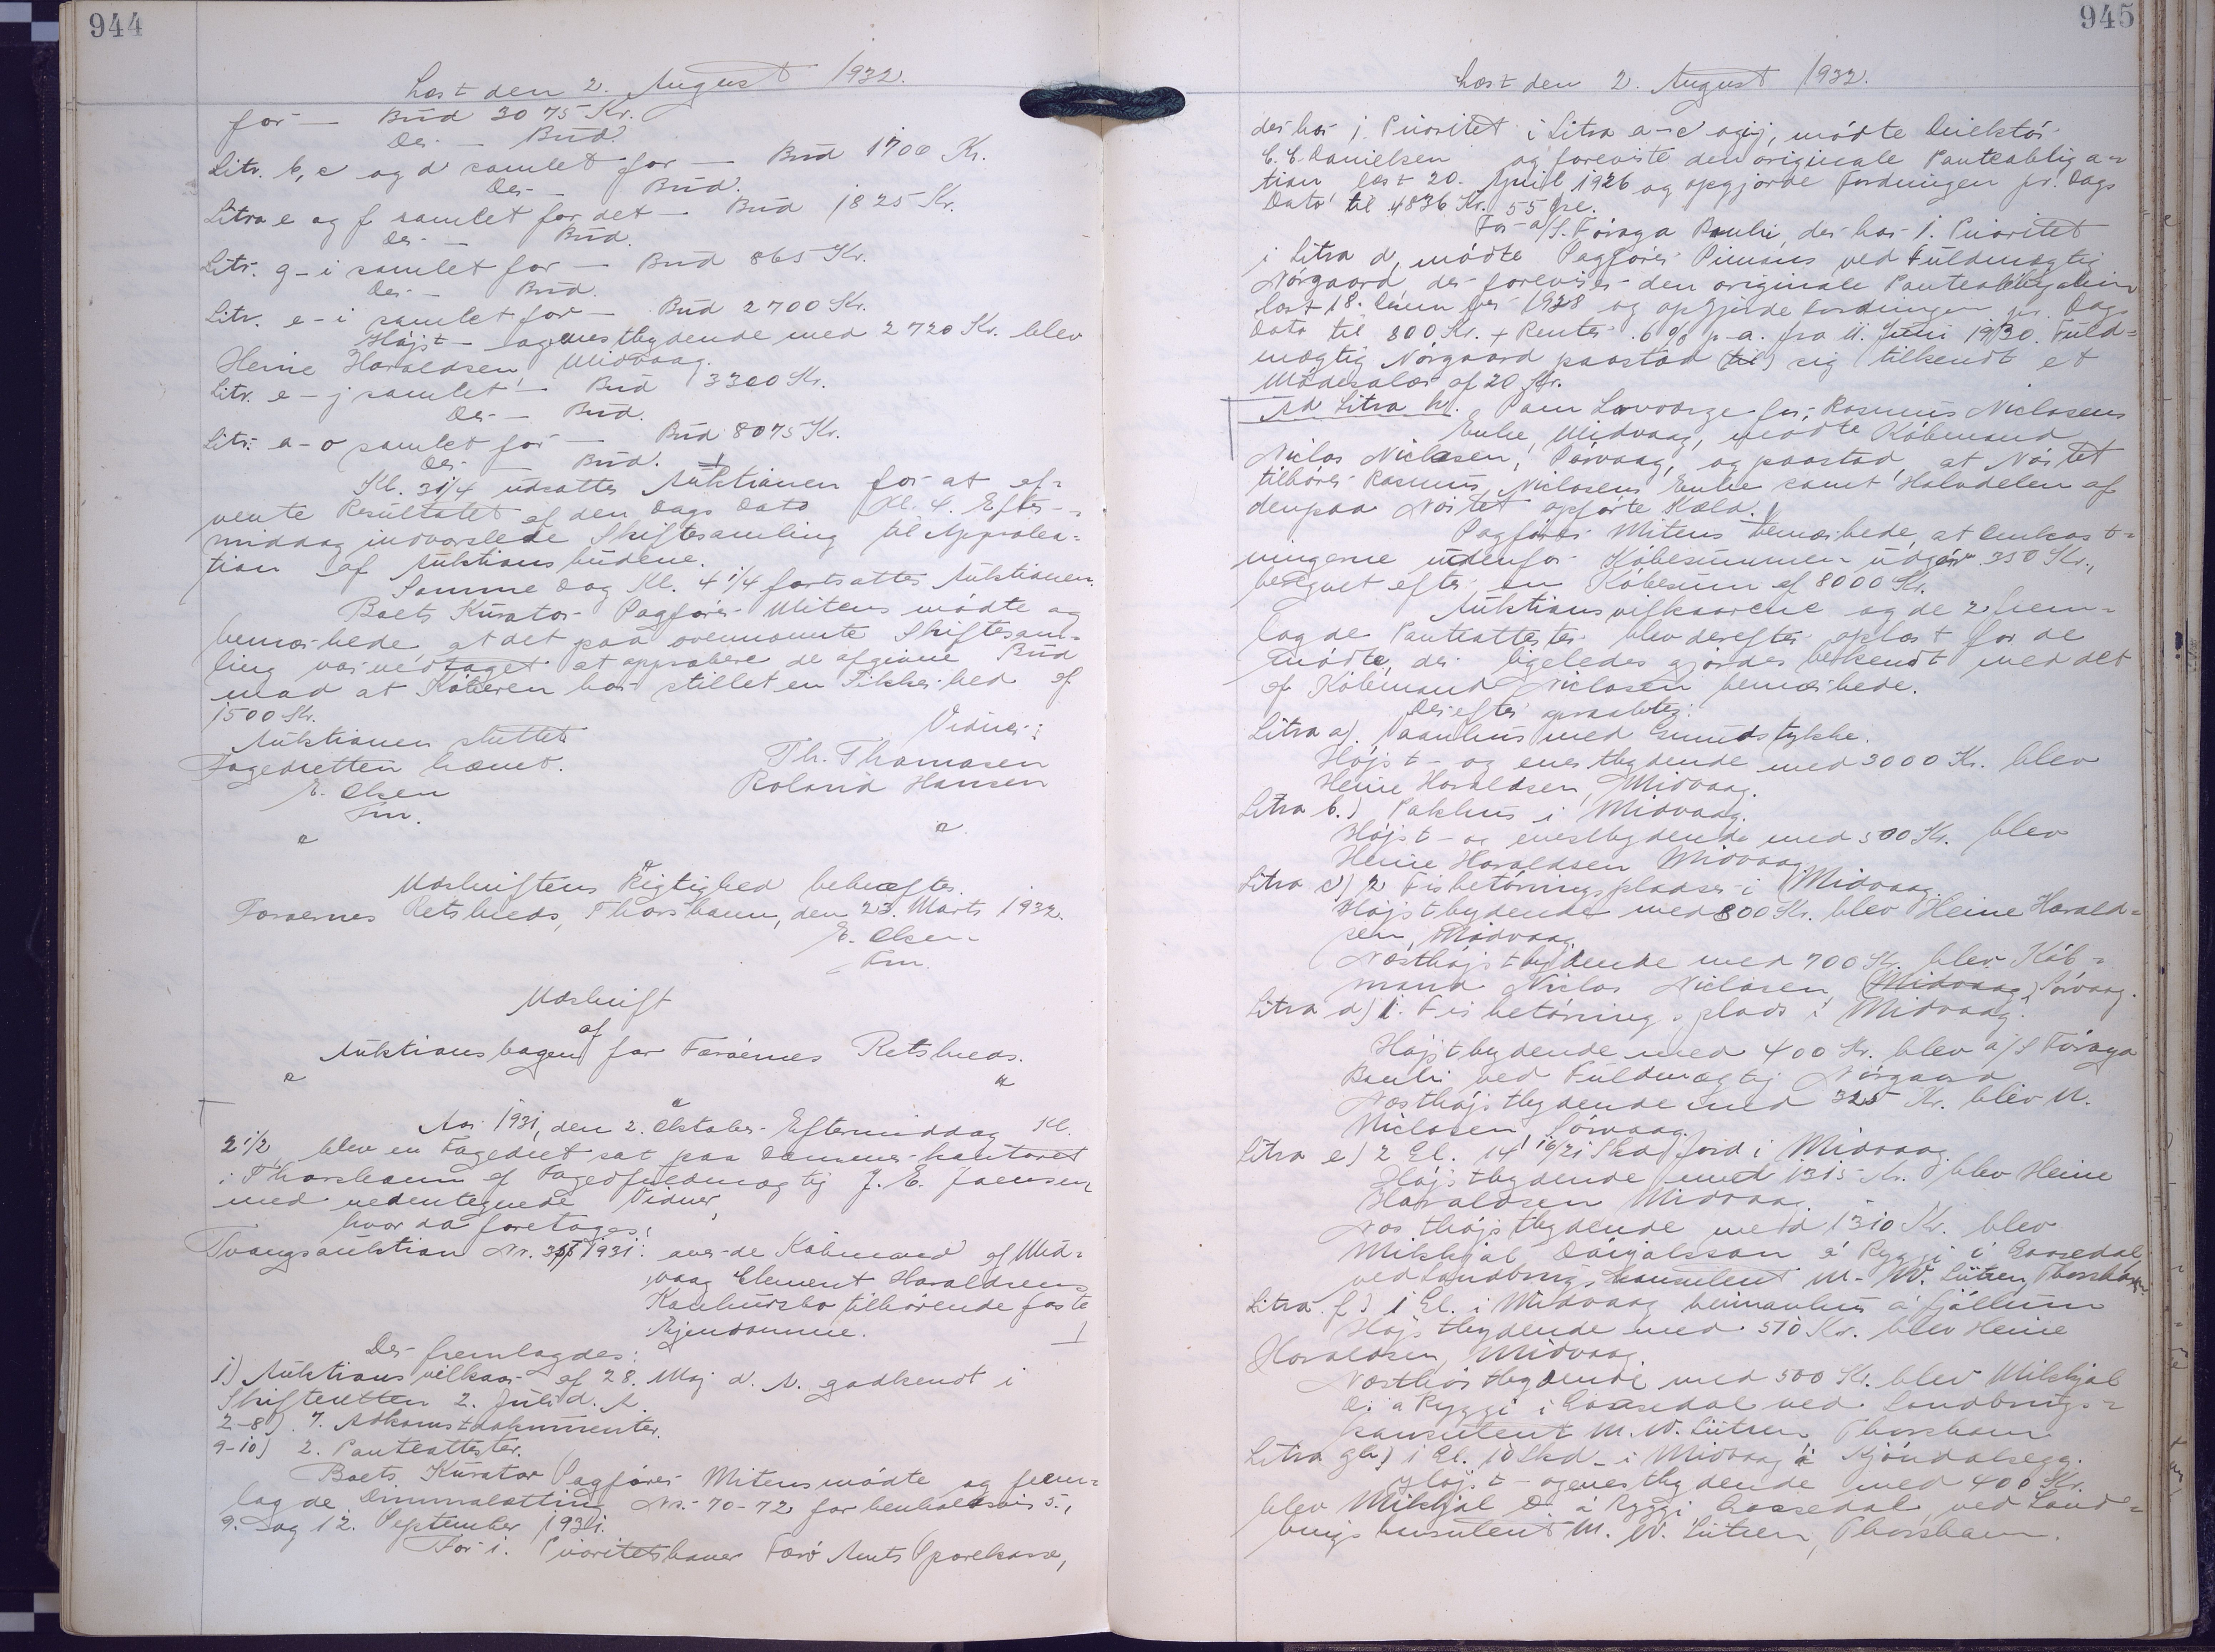 944
Læst den 2. August 1932.
for — Bud 3075 Kr.
Der — Bud.
Litr. b, c og d samlet for — Bud 1700 Kr.
Der — Bud.
Litra e og f samlet for det — Bud 1825 Kr.
Der — Bud.
Litr. g-i samlet for — Bud 865 Kr.
Der — Bud.
Litr. e-i samlet for — Bud 2700 Kr.
Højst- og enestbydende med 2720 Kr. blev
Heine Haraldsen, Midvaag.
Litr. e-j samlet — Bud 3300 Kr.
Der — Bud.
Litr. a-o samlet for — Bud 8075 Kr.
Der — Bud.
Kl. 3 1/4 udsattes Auktionen for at af-
vente Resultatet af den Dags Dato Kl. 4. Efter-
middag indvarslede Skiftesamling til Approba-
tion af Auktionsbudene.
Samme Dag Kl. 4 1/4 fortsattes Auktionen.
Boets Kurator Sagfører Mitens mødte og
bemærkede, at det paa ovennævnte Skiftesam-
ling var vedtaget at approbere de afgivne Bud
mod at Køberen har stillet en Sikkerhed af
1500 Kr.
Auktionen sluttet
Vidner:
Fogedretten hævet.
Th. Thomasen
E. Olsen
Roland Hansen
Fm.
Udskriftens Rigtighed bekræftes.
Færøernes Retskreds, Thorshavn, den 23. Marts 1932.
E. Olsen
Fm.
Udskrift
af
Auktionsbogen for Færøernes Retskreds.
Aar 1931, den 2. Oktober Eftermiddag Kl.
2 1/2 blev en Fogedret sat paa Dommerkontoret
i Thorshavn af Fogedfuldmægtig J. E. Joensen
med undertegnede Vidner,
hvor da foretoges:
Tvangsauktion Nr. 1931: over de Købmand af Mid-
vaag Clement Haraldsens
Konkursbo tilhørende faste
Ejendomme.
Der fremlagdes:
1) Auktionsvilkaar af 28. Maj d. A. godkendt i
Skifteretten 2. Juli d. A.
2-8) 7. Adkomstdokumenter.
9-10) 2. Panteattester.
Boets Kurator Sagfører Mitens mødte og frem-
lagde Dimmalætting Nr. 70-72 for henholdsvis 5.,
9. og 12. September 1931.
For 1. Prioritetshaver Færø Amts Sparekasse,
945
Læst den 2. August 1932.
der har 1. Prioritet i Litra a-c og j, mødte Direktør
C. C. Danielsen og foreviste den originale Panteobliga-
tion læst 20. April 1926 og opgjorde Fordringen pr. Dags
Dato til 4836 Kr. 55 Øre.
For a/s. Føroya Banki, der har 1. Prioritet
i Litra d, mødte Sagfører ved Fuldmægtig
Nørgaard, der foreviser den originale Panteobligation
læst 18. 1928 og opgjorde Fordringen pr. Dags
Dato til 800 Kr. + Renter 6% p.a. fra 11. Juni 1930. Fuld-
mægtig Nørgaard paastod (til) sig tilkendt et
Mødesalær af 20 Kr.
Ad Litra h. Som Lavværge for Rasmus Niclasens
Enke, Midvaag, mødte Købmand
Niclas Niclasen, Sørvaag, og paastod, at Nøstet
tilhører Rasmus Niclasens Enke samt Halvdelen af
den paa Nøstet opførte Kæld.
Sagfører Mitens bemærkede, at Omkost-
ningerne udenfor Købesummen udgør 350 Kr.,
beregnet efter en Købesum af 8000 Kr.
Auktionsvilkaarene og de 2 frem-
lagde Panteattester blev derefter oplæst for de
mødte, der ligeledes gjordes bekendt med det
af Købmand Niclasen bemærkede.
Derefter opraabtes:
Litra a). Vaanhus med Grundstykke.
Højst- og enestbydende med 3000 Kr. blev
Heine Haraldsen, Midvaag.
Litra b.) Pakhus i Midvaag.
Højst- og enestbydende med 500 Kr. blev
Heine Haraldsen Midvaag.
Litra c) 2 Fisketørringspladser i Midvaag.
Højstbydende med 800 Kr. blev Heine Harald-
sen, Midvaag.
Næsthøjstbydende med 700 Kr. blev Køb-
mand Niclas Niclasen, Midvaag, Sørvaag.
Litra d) 1. Fisketørringsplads i Midvaag.
Højstbydende med 400 Kr. blev a/s Føroya
Banki ved Fuldmægtig Nørgaard
Næsthøjstbydende med 325 Kr. blev N.
Niclasen, Sørvaag.
Litra e) 2 Gl. 14 16/21 Skd Jord i Midvaag.
Højstbydende med 1315 Kr. blev Heine
Haraldsen Midvaag.
Næsthøjstbydende med 1310 Kr. blev
Mikkjal á Ryggi i Gaasedal
ved Landbrugskonsulent M. W. Lützen, Thorshavn.
Litra f) 1 Gl. i Midvaag heimanhus á fjøllum
Højstbydende med 510 Kr. blev Heine
Haraldsen, Midvaag.
Næsthøjstbydende med 500 Kr. blev Mikkjal
D. á Ryggi i Gaasedal ved Landbrugs-
konsulent M. W. Lützen Thorshavn
Litra g) 1 Gl. 10 Skd. i Midvaag á
Højst- og enestbydende med 400 Kr.
blev Mikkjal D. á Ryggi Gaasedal, ved Land-
brugskonsulent M. W. Lützen, Thorshavn.